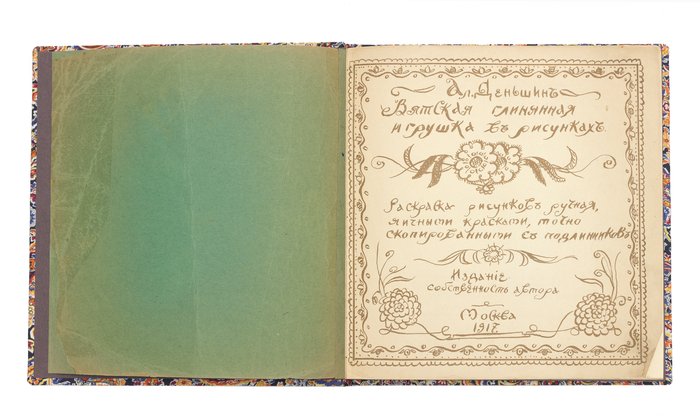 Ал. Деньшинъ
Вятская глиняная
игрушка въ рисункахъ.
Раскраска рисунковъ ручная,
яичными красками, точно
скопированными съ подлинниковъ
Изданіе
собственность автора
Москва
1917